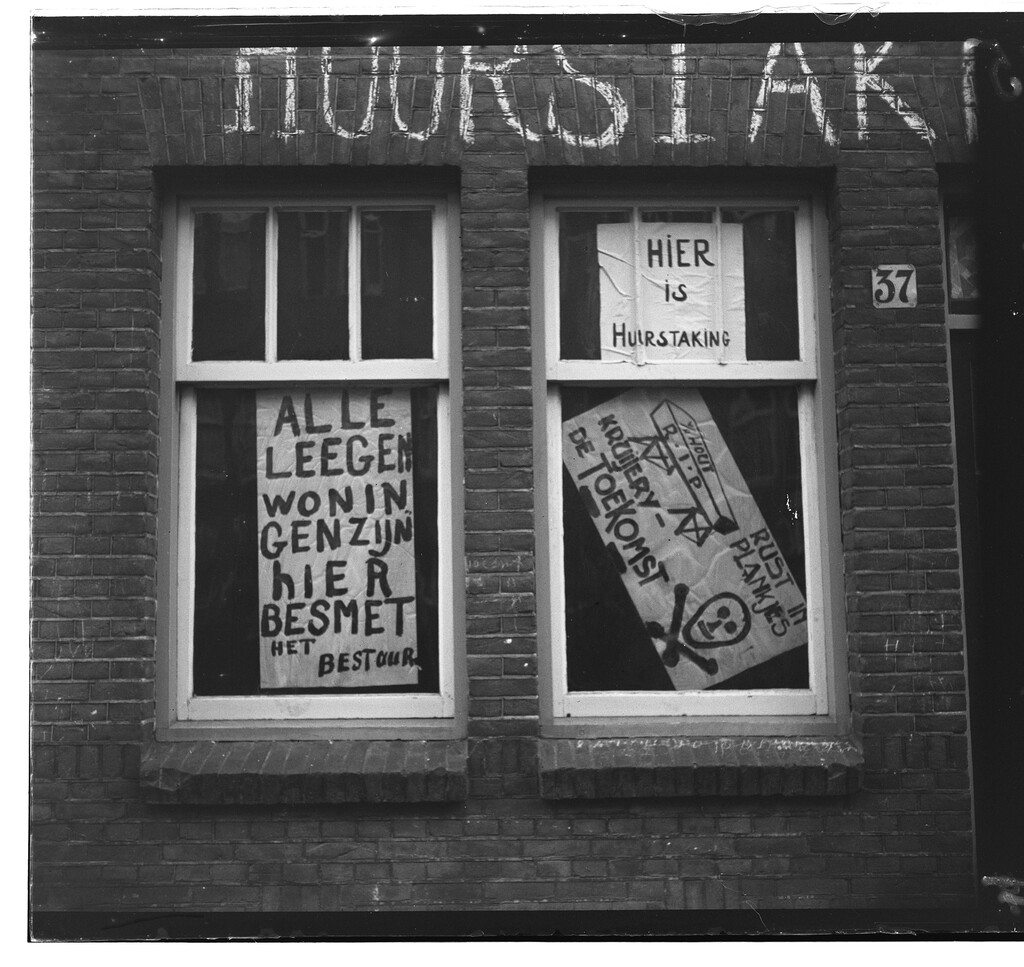 HUURSTAK
HIER
is
HUURSTAKING
37
ALLE
LEEGEN
WONIN
GENZIJN
hIER
BESMET
HET
BESTUUR
R.I.P
KRUIERY-
DE TOEKOMST
RUST IN
PLANKJES